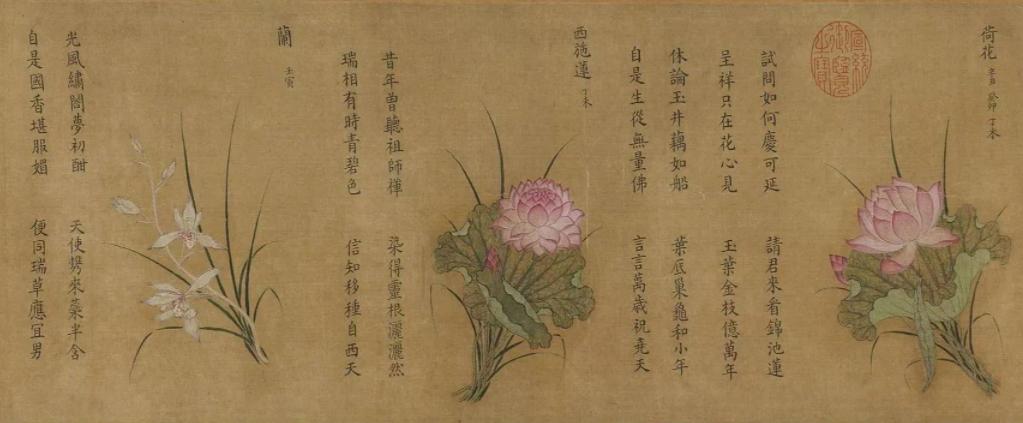 荷花 辛丑 癸卯 丁未
宣統御覽之寶
試問如何慶可延 請君來看錦池蓮
呈祥只在花心見 玉葉金枝億萬年
休論玉井藕如船 葉底巢龜和小年
自是生從無量佛 言言萬歲祝堯天
西施蓮 丁未
昔年曾聽祖師禪 染得靈根灑灑然
瑞相有時青碧色 信知移種自西天
蘭 壬寅
光風繡閣夢初酣 天使攜來蘂半含
自是國香堪服媚 便同瑞草應宜男